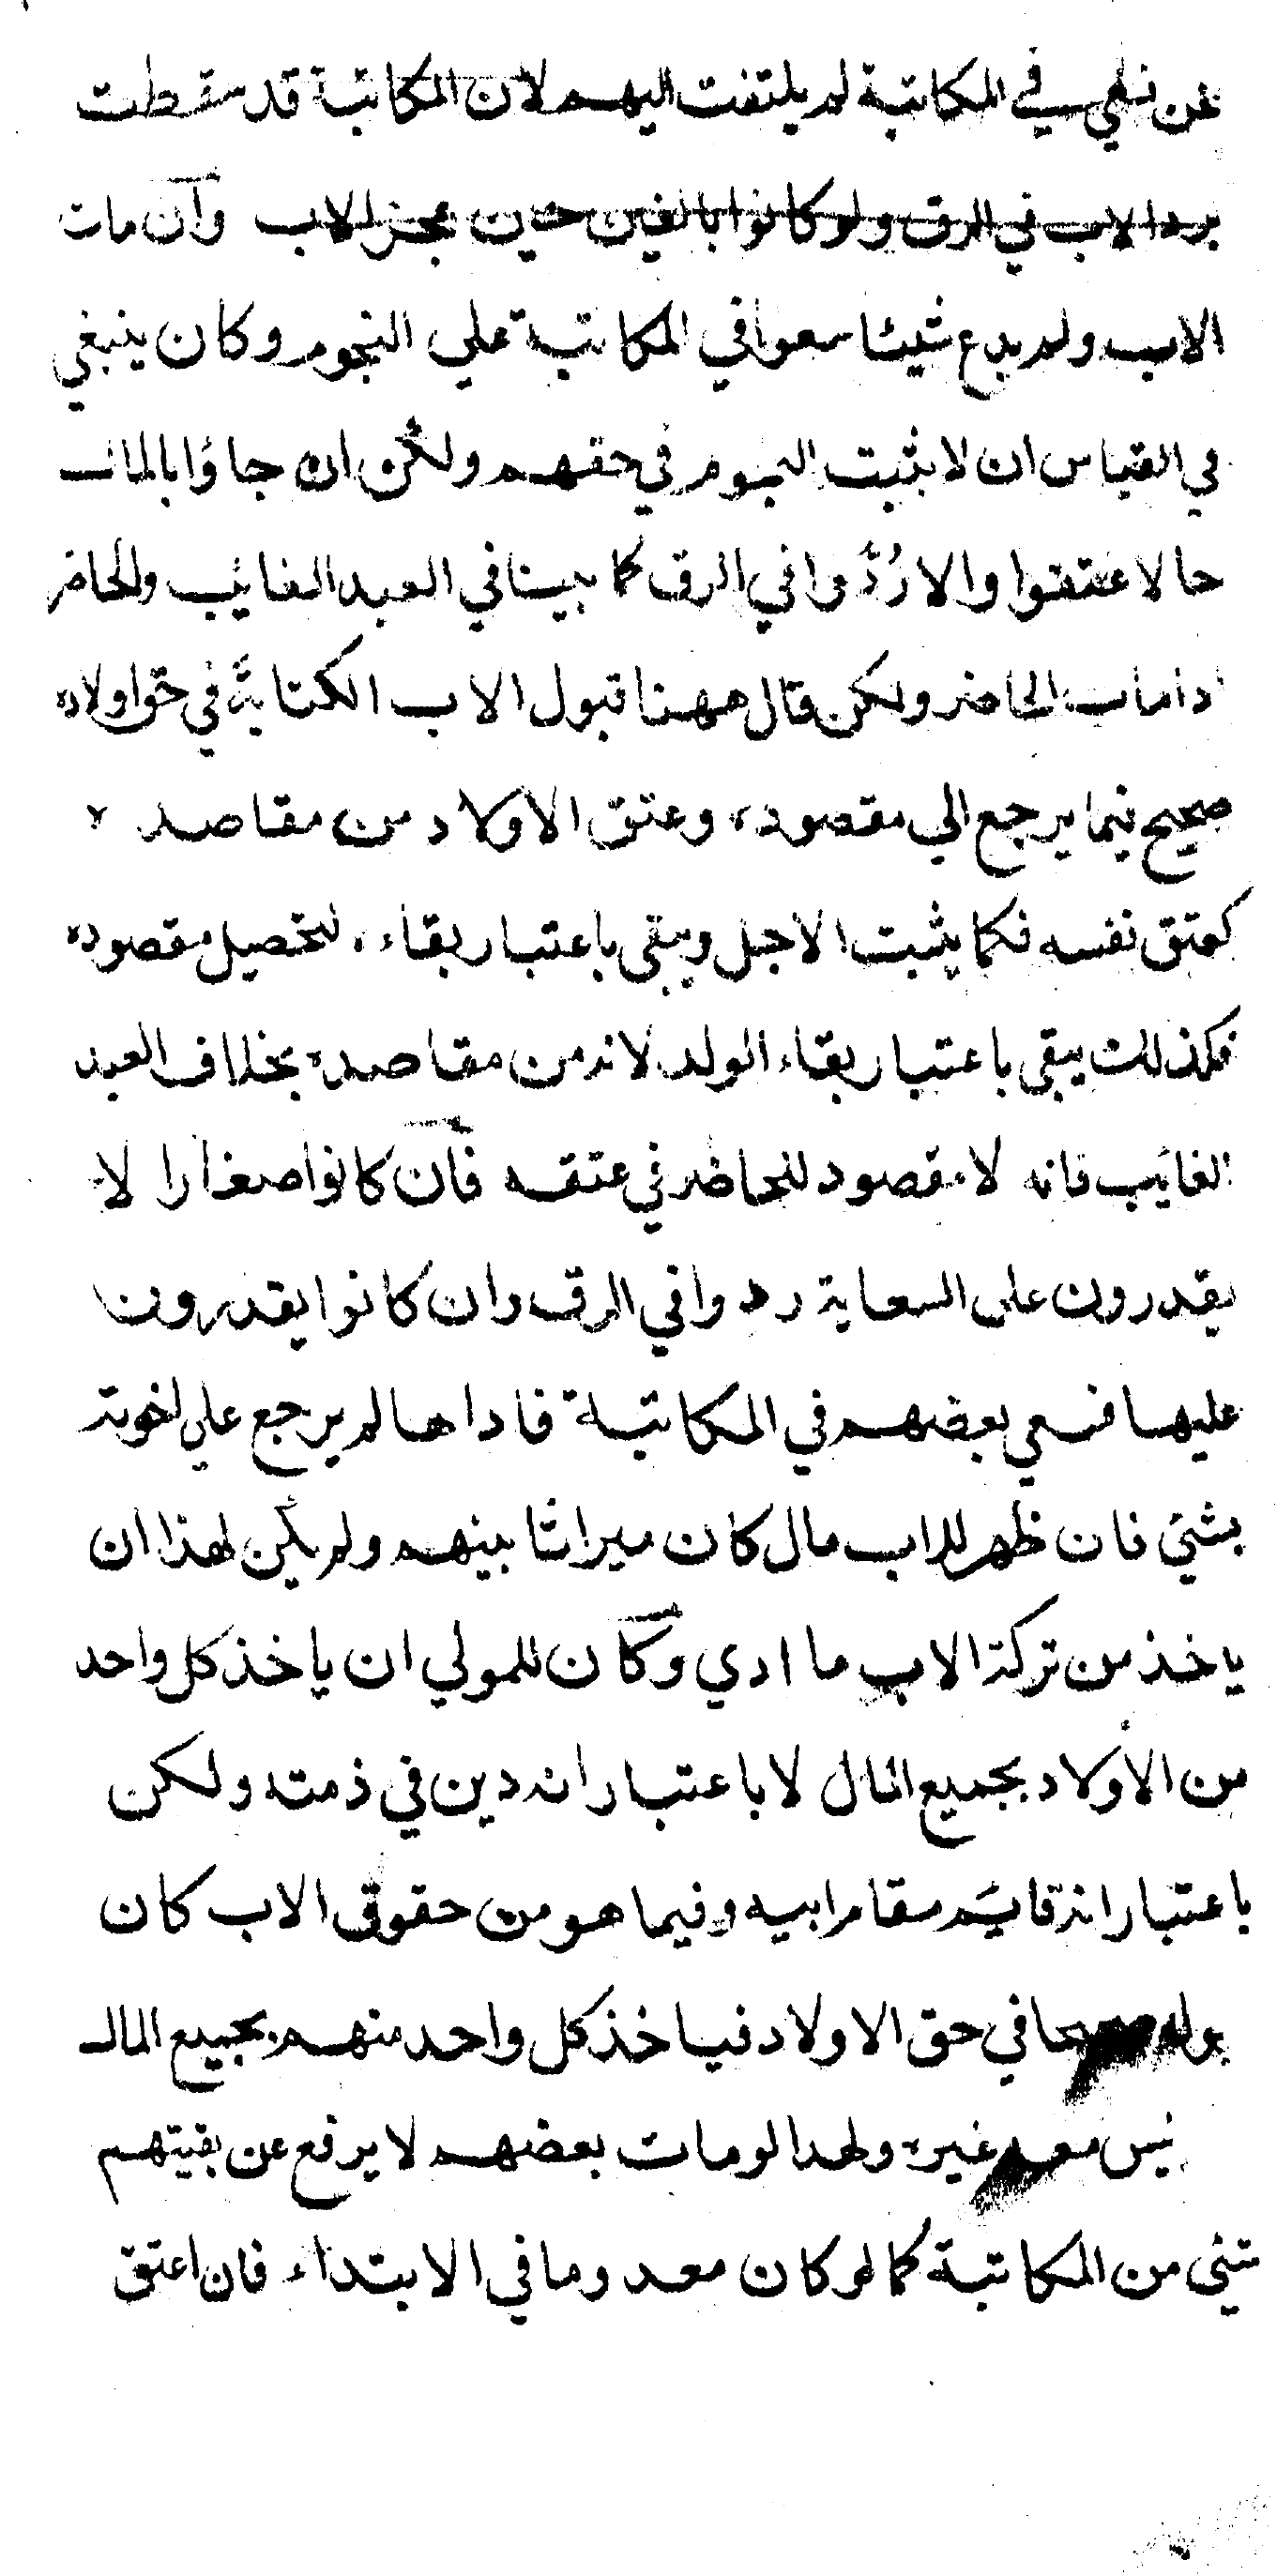 نحن نسعي في المكاتبة لم يلتفت اليهم لان المكاتبة قد سقطت
برد الاب في الرق ولو كانوا بالغين حين عجز الاب وان مات
الاب ولم يدع شيئا سعوا في المكاتبة علي النجوم وكان ينبغي
في القياس ان لا يثبت النجوم في حقهم ولكن ان جاؤا بالمال
حالا عتقوا والا ردوا في الرق كما بينا في العبد الغائب والحاضر
اذا مات الحاضر ولكن قال ههنا قبول الاب الكتابة في حق اولاده
صحيح فيما يرجع الي مقصوده وعتق الاولاد من مقاصده
كعتق نفسه فكما يثبت الاجل ويبقى باعتبار بقاءه لتحصيل مقصوده
فكذلك يبقى باعتبار بقاء الولد لانه من مقاصده بخلاف العبد
الغائب فانه لا مقصود للحاضر في عتقه فان كانوا صغارا لا
يقدرون على السعاية ردوا في الرق وان كانوا يقدرون
عليها فسعي بعضهم في المكاتبة فاداها لم يرجع علي اخوته
بشئ فان ظهر للاب مال كان ميراثا بينهم ولم يكن لهذا ان
ياخذ من تركة الاب ما ادي وكان للمولي ان ياخذ كل واحد
من الاولاد بجميع المال لا باعتبار انه دين في ذمته ولكن
باعتبار انه قائم مقام ابيه وفيما هو من حقوق الاب كان
في حق الاولاد فياخذ كل واحد منهم بجميع المال
ليس معه غيره ولهذا لو مات بعضهم لا يرفع عن بقيتهم
شئ من المكاتبة كما لو كان معدوما في الابتداء فان اعتق